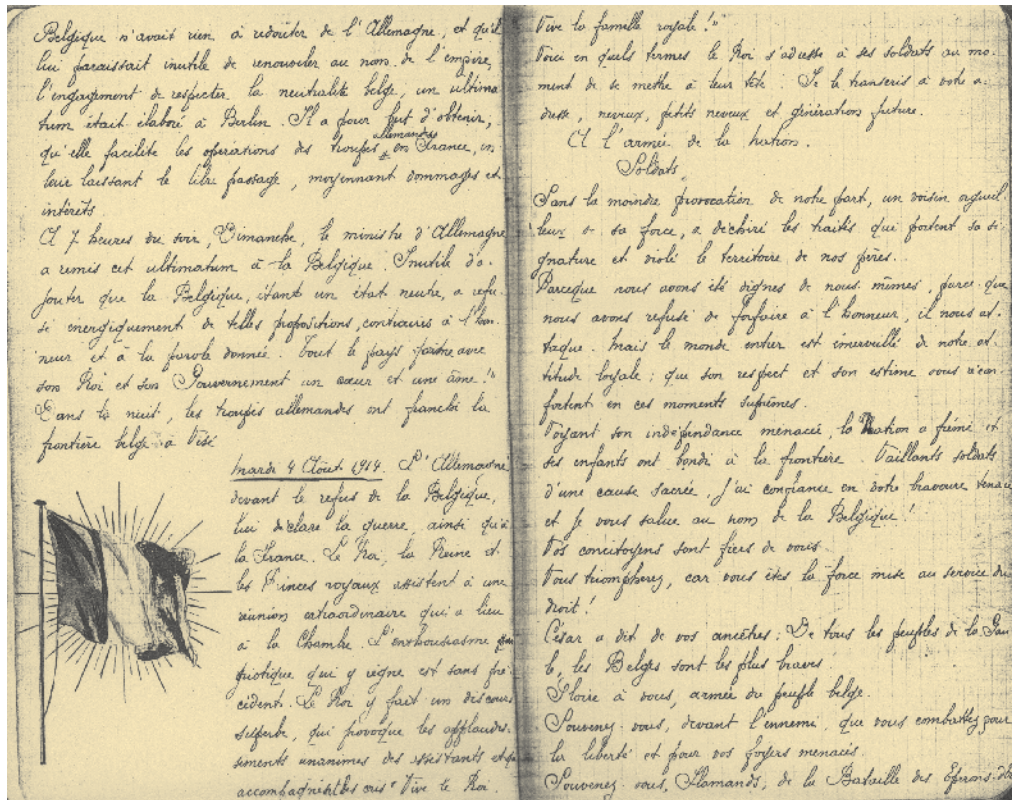 Belgique n'avait rien à redouter de l'Allemagne, et qu'il
lui paraissait inutile de renouveler au nom de l'empire,
l'engagement de respecter la neutralité belge, un ultima
tum était élaboré à Berlin. Il a pour but d'obtenir,
qu'elle facilite les opérations des troupes allemandes en France, en
leur laissant le libre passage, moyennant dommages et
intérêts.
A 7 heures du soir, Dimanche, le ministre d'Allemagne
a remis cet ultimatum à la Belgique. Inutile d'a-
jouter que la Belgique, étant un état neutre, a refu-
sé énergiquement de telles propositions, contraires à l'hon-
neur et à la parole donnée. Tout le pays forme avec
son Roi et son Gouvernement un cœur et une âme!"
Dans la nuit, les troupes allemandes ont franchi la
frontière belge à Visé
Mardi 4 Août 1914. L'Allemagne
devant le refus de la Belgique,
lui déclare la guerre ainsi qu'à
la France. Le Roi, la Reine et
les Princes royaux assistent à une
réunion extraordinaire qui a lieu
à la Chambre. L'enthousiasme pa
triotique qui y règne est sans pré
cédent. Le Roi y fait un discours
superbe, qui provoque les applaudis-
sements unanimes des assistants et
accompagnent des cris "Vive le Roi.
Vive la famille royale!"
Voici en quels termes le Roi s'adresse à ses soldats au mo-
ment de se mettre à leur tête. Je le transcris à votre a-
dresse, neveux, petits neveux et génération future.
A l'armée de la Nation.
Soldats,
Sans la moindre provocation de notre part, un voisin orgueil-
leux de sa force, a déchiré les traités qui portent sa si-
gnature et violé le territoire de nos pères.
Parceque nous avons été dignes de nous-mêmes, parce que
nous avons refusé de forfaire à l'honneur, il nous at-
taque. Mais le monde entier est émerveillé de notre at-
titude loyale; que son respect et son estime vous récon-
fortent en ces moments suprêmes.
Voyant son indépendance menacée, la Nation a frémi et
ses enfants ont bondi à la frontière. Vaillants soldats
d'une cause sacrée, j'ai confiance en votre bravoure tenace
et je vous salue au nom de la Belgique!
Vos concitoyens sont fiers de vous.
Vous triompherez, car vous êtes la force mise au service du
droit!
César a dit de vos ancêtres: De tous les peuples de la Gau
le, les Belges sont les plus braves.
Gloire à vous, armée du peuple belge.
Souvenez-vous, devant l'ennemi, que vous combattez pour
la liberté et pour vos foyers menacés.
Souvenez-vous, Flamands, de la Bataille des Eperons d'